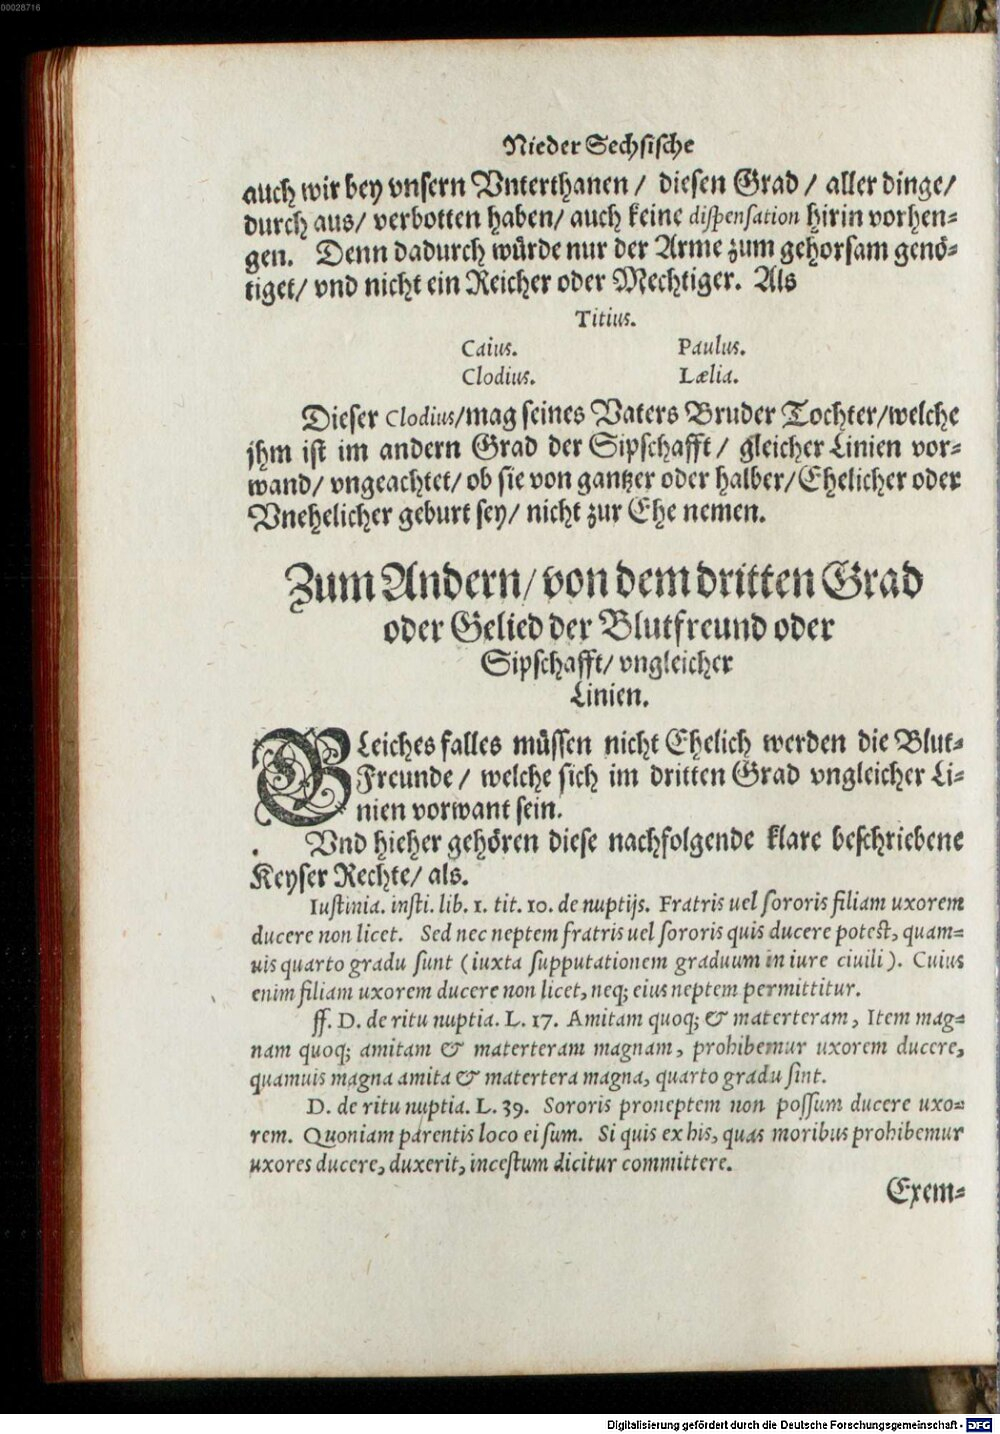 00028716
Nieder Sechsische
auch wir bey vnsern Vnterthanen / diesen Grad / aller dinge/
durch aus/ verbotten haben/ auch keine dispensation hirin vorhen=
gen. Denn dadurch würde nur der Arme zum gehorsam genö=
tiget/ vnd nicht ein Reicher oder Mechtiger. Als
Titius.
Caius. Paulus.
Clodius. Lælia.
Dieser Clodius/mag seines Vaters Bruder Tochter/welche
jhm ist im andern Grad der Sipschafft / gleicher Linien vor=
wand/ vngeachtet/ ob sie von gantzer oder halber/Ehelicher oder
Vnehelicher geburt sey/ nicht zur Ehe nemen.
Zum Andern/ von dem dritten Grad
oder Gelied der Blutfreund oder
Sipschafft/ vngleicher
Linien.
GLeiches falles müssen nicht Ehelich werden die Blut=
Freunde / welche sich im dritten Grad vngleicher Li=
nien vorwant sein.
Vnd hieher gehören diese nachfolgende klare beschriebene
Keyser Rechte/ als.
Iustinia. insti. lib. 1. tit. 10. de nuptijs. Fratris uel sororis filiam uxorem
ducere non licet. Sed nec neptem fratris uel sororis quis ducere potest, quam=
uis quarto gradu sunt (iuxta supputationem graduum in iure ciuili). Cuius
enim filiam uxorem ducere non licet, neq; eius neptem permittitur.
ff. D. de ritu nuptia. L. 17. Amitam quoq; & materteram, Item mag=
nam quoq; amitam & materteram magnam, prohibemur uxorem ducere,
quamuis magna amita & matertera magna, quarto gradu sint.
D. de ritu nuptia. L. 39. Sororis proneptem non possum ducere uxo=
rem. Quoniam parentis loco ei sum. Si quis ex his, quas moribus prohibemur
uxores ducere, duxerit, incestum dicitur committere.
Exem=
Digitalisierung gefördert durch die Deutsche Forschungsgemeinschaft - DFG